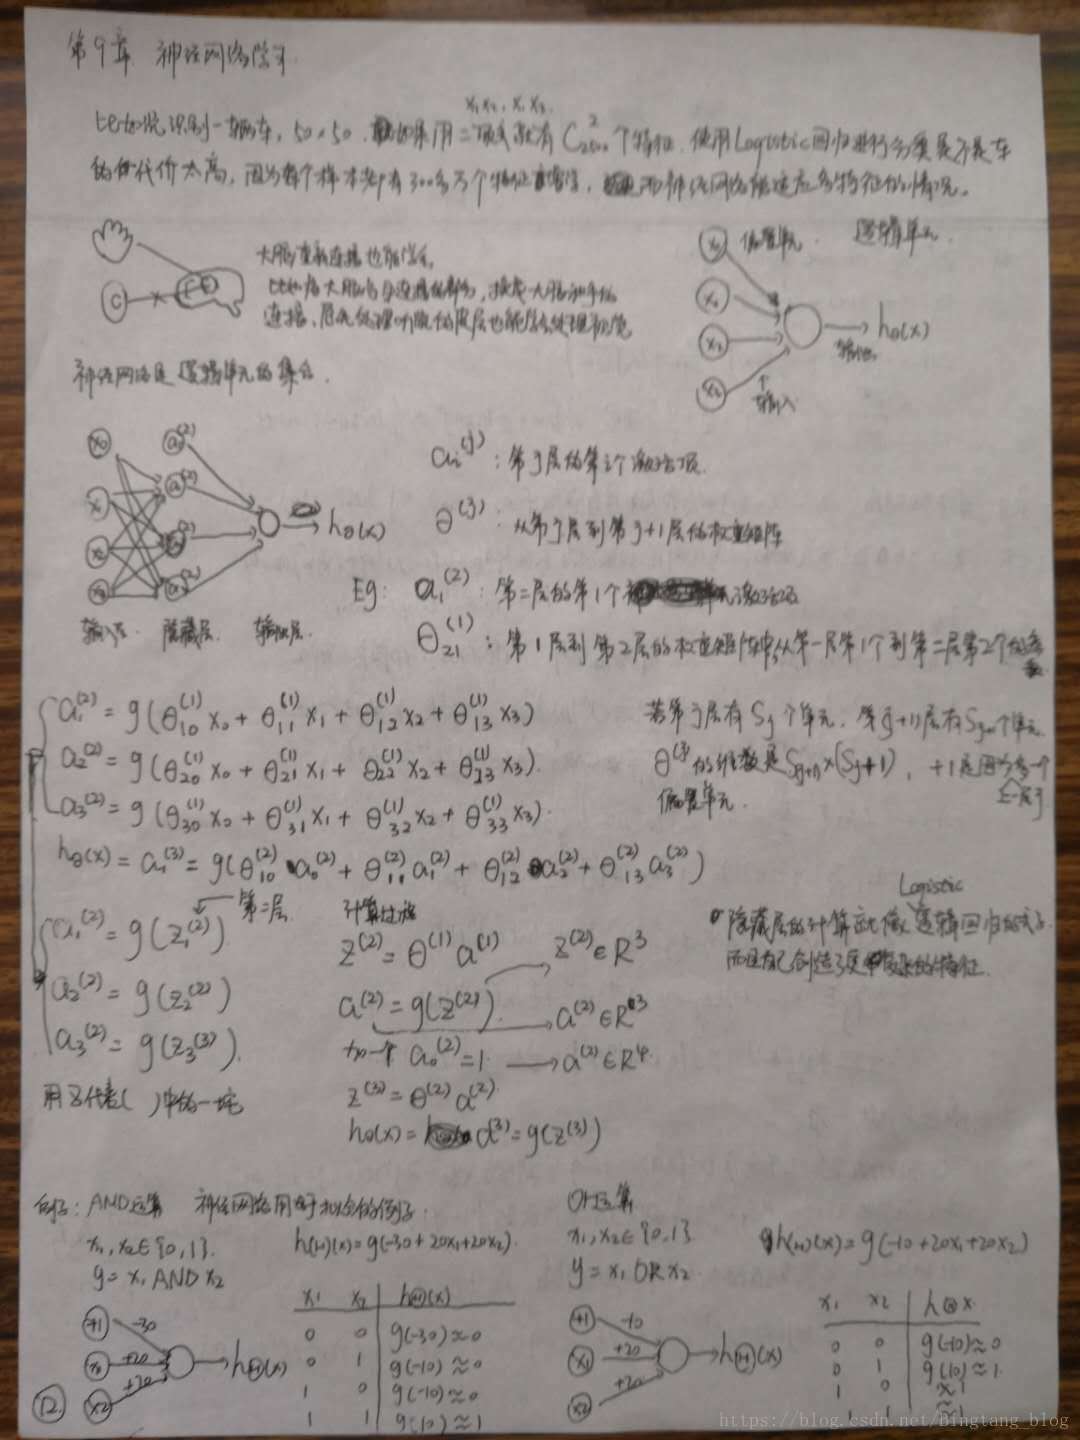 第9章 神经网络学习
x₁x₂, x₁x₃.
比如说识别一辆车, 50×50. 如果用二项式就有 C²₂₅₀₀ 个特征. 使用Logistic回归进行分类是不是车
的代价太高, 因为每个样本都有300多万个特征, 而神经网络能适应多特征的情况。
大脑重新连接也能学会.
连接, 原先处理听觉的皮层也能学会处理视觉
神经网络是逻辑单元的集合.
x₀ 偏置单元. 逻辑单元.
x₁
x₂
x₃
hθ(x)
输出
↑输入
x₀ a₀⁽²⁾
x₁ a₁⁽²⁾
x₂ a₂⁽²⁾
x₃ a₃⁽²⁾
hθ(x)
输入层. 隐藏层. 输出层.
aᵢ⁽ʲ⁾: 第j层的第i个激活项.
θ⁽ʲ⁾: 从第j层到第j+1层的权重矩阵
Eg: a₁⁽²⁾: 第二层的第1个激活项
θ₂₁⁽¹⁾: 第1层到第2层的权重矩阵中从第一层第1个到第二层第2个的参数
a₁⁽²⁾ = g(θ₁₀⁽¹⁾x₀ + θ₁₁⁽¹⁾x₁ + θ₁₂⁽¹⁾x₂ + θ₁₃⁽¹⁾x₃)
a₂⁽²⁾ = g(θ₂₀⁽¹⁾x₀ + θ₂₁⁽¹⁾x₁ + θ₂₂⁽¹⁾x₂ + θ₂₃⁽¹⁾x₃).
a₃⁽²⁾ = g(θ₃₀⁽¹⁾x₀ + θ₃₁⁽¹⁾x₁ + θ₃₂⁽¹⁾x₂ + θ₃₃⁽¹⁾x₃).
hθ(x) = a₁⁽³⁾ = g(θ₁₀⁽²⁾a₀⁽²⁾ + θ₁₁⁽²⁾a₁⁽²⁾ + θ₁₂⁽²⁾a₂⁽²⁾ + θ₁₃⁽²⁾a₃⁽²⁾)
若第j层有Sj个单元. 第j+1层有Sj+1个单元.
θ⁽ʲ⁾的维数是Sj+1×(Sj+1), +1是因为多一个
偏置单元.
a₁⁽²⁾ = g(z₁⁽²⁾) 第二层.
a₂⁽²⁾ = g(z₂⁽²⁾)
a₃⁽²⁾ = g(z₃⁽³⁾).
用z代表( )中的一坨
计算过程
z⁽²⁾ = θ⁽¹⁾a⁽¹⁾ z⁽²⁾∈R³
a⁽²⁾ = g(z⁽²⁾). → a⁽²⁾∈R³
加一个 a₀⁽²⁾=1. → a⁽²⁾∈R⁴.
z⁽³⁾ = θ⁽²⁾a⁽²⁾
hθ(x) = a⁽³⁾ = g(z⁽³⁾)
Logistic
隐藏层的计算就像逻辑回归的式子.
而且自己创造了更复杂的特征.
例子: AND运算 神经网络用于拟合的例子.
x₁, x₂∈{0,1}. h(H)(x)=g(-30+20x₁+20x₂).
y = x₁ AND x₂
+1 -30
x₁ +20
x₂ +20
hⒽ(x)
x₁ x₂ hⒽ(x)
0 0 g(-30)≈0
0 1 g(-10)≈0
1 0 g(-10)≈0
1 1 g(10)≈1
OR运算
x₁, x₂∈{0,1}. h(H)(x)=g(-10+20x₁+20x₂)
y = x₁ OR x₂.
+1 -10
x₁ +20
x₂ +20
hⒽ(x)
x₁ x₂ hⒽx.
0 0 g(-10)≈0
0 1 g(10)≈1.
1 0 ≈1
1 1 ≈1
12
https://blog.csdn.net/Bingtang_blog